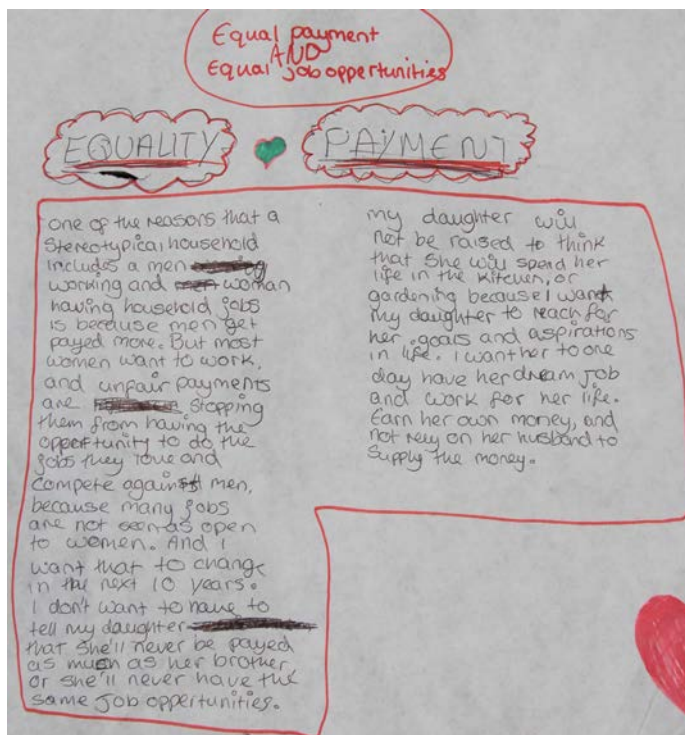 Equal payment
AND
Equal job oppertunities
EQUALITY
PAYMENT
one of the reasons that a
stereotypical household
includes a men
working and woman
having household jobs
is because men get
payed more. But most
women want to work,
and unfair payments
are stopping
them from having the
oppertunity to do the
jobs they love and
compete against men,
because many jobs
are not seen as open
to women. And I
want that to change
in the next 10 years.
I don't want to have to
tell my daughter
that she'll never be payed
as much as her brother
or she'll never have the
same job oppertunities.
my daughter will
not be raised to think
that she will spend her
life in the kitchen, or
gardening because I want
my daughter to reach for
her goals and aspirations
in life. I want her to one
day have her dream job
and work for her life.
Earn her own money, and
not rely on her husband to
supply the money.